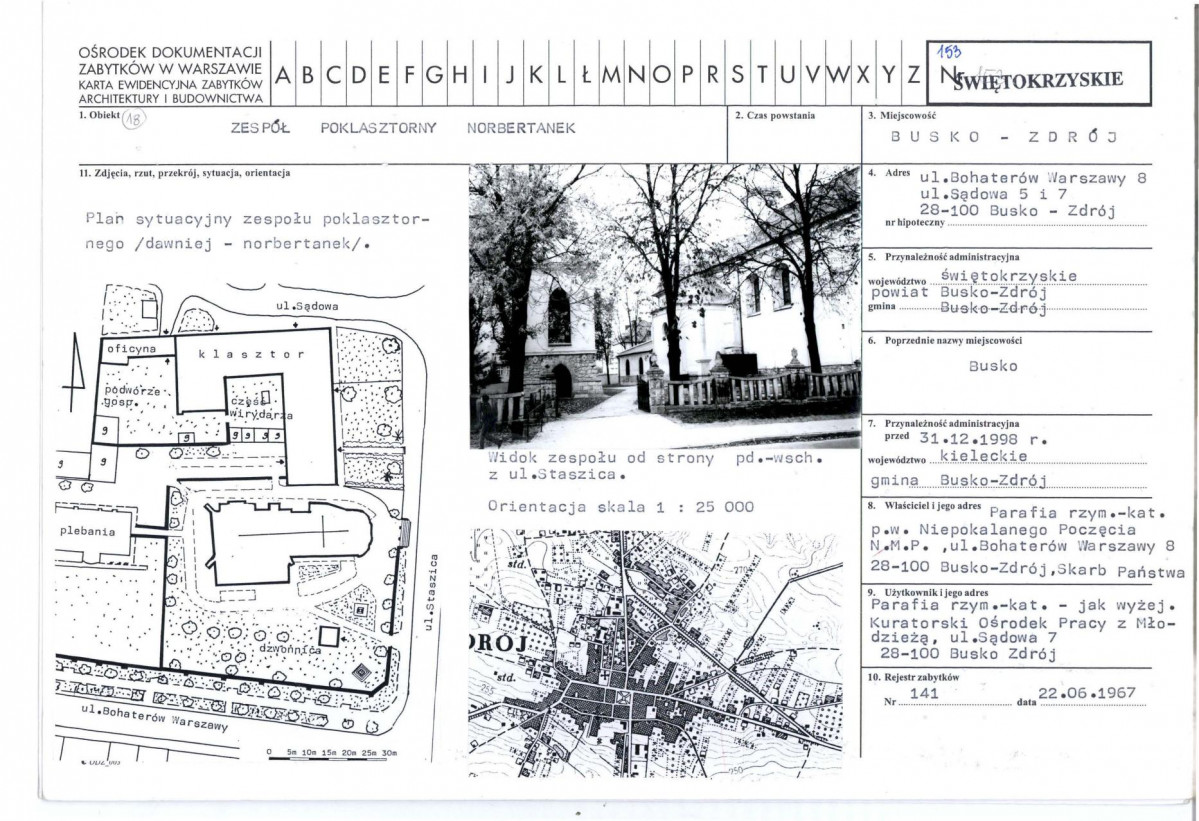 OŚRODEK DOKUMENTACJI
ZABYTKÓW W WARSZAWIE
KARTA EWIDENCYJNA ZABYTKÓW
ARCHITEKTURY I BUDOWNICTWA
A B C D E F G H I J K L Ł M N O P R S T U V W X Y Z
153
Nr
ŚWIĘTOKRZYSKIE
1. Obiekt 18
ZESPÓŁ POKLASZTORNY NORBERTANEK
2. Czas powstania
3. Miejscowość
BUSKO - ZDRÓJ
11. Zdjęcia, rzut, przekrój, sytuacja, orientacja
Plan sytuacyjny zespołu poklasztor-
nego /dawniej - norbertanek/.
ul.Sądowa
oficyna
klasztor
podwórze
gosp.
część
wirydarza
g
g g g g
g
g g
plebania
ul.Staszica
dzwonnica
ul.Bohaterów Warszawy
0 5m 10m 15m 20m 25m 30m
Widok zespołu od strony pd.-wsch.
z ul.Staszica.
Orientacja skala 1 : 25 000
std.
270
DRÓJ
std.
255
250
4. Adres ul.Bohaterów Warszawy 8
ul.Sądowa 5 i 7
28-100 Busko - Zdrój
nr hipoteczny
5. Przynależność administracyjna
województwo świętokrzyskie
powiat Busko-Zdrój
gmina Busko-Zdrój
6. Poprzednie nazwy miejscowości
Busko
7. Przynależność administracyjna
przed 31.12.1998 r.
województwo kieleckie
gmina Busko-Zdrój
8. Właściciel i jego adres Parafia rzym.-kat.
p.w. Niepokalanego Poczęcia
N.M.P. ,ul.Bohaterów Warszawy 8
28-100 Busko-Zdrój,Skarb Państwa
9. Użytkownik i jego adres
Parafia rzym.-kat. - jak wyżej.
Kuratorski Ośrodek Pracy z Mło-
dzieżą, ul.Sądowa 7
28-100 Busko Zdrój
10. Rejestr zabytków
Nr 141 data 22.06.1967